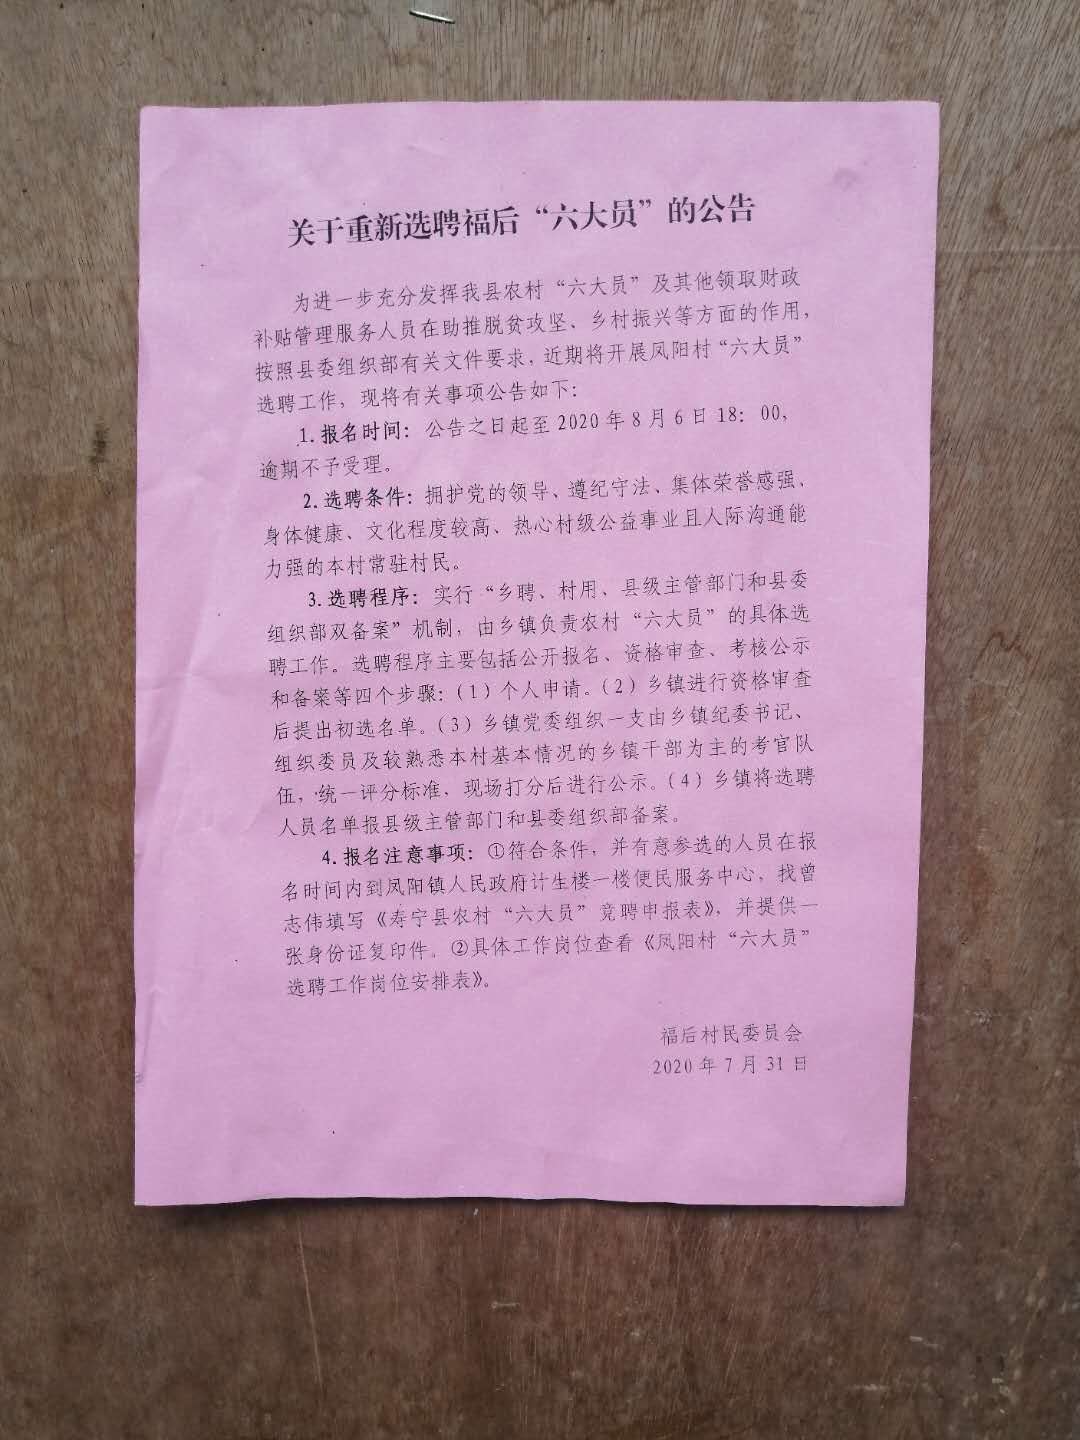 关于重新选聘福后“六大员”的公告
为进一步充分发挥我县农村“六大员”及其他领取财政
补贴管理服务人员在助推脱贫攻坚、乡村振兴等方面的作用，
按照县委组织部有关文件要求，近期将开展凤阳村“六大员”
选聘工作，现将有关事项公告如下：
1.报名时间：公告之日起至2020年8月6日18：00，
逾期不予受理。
2.选聘条件：拥护党的领导、遵纪守法、集体荣誉感强、
身体健康、文化程度较高、热心村级公益事业且人际沟通能
力强的本村常驻村民。
3.选聘程序：实行“乡聘、村用、县级主管部门和县委
组织部双备案”机制，由乡镇负责农村“六大员”的具体选
聘工作。选聘程序主要包括公开报名、资格审查、考核公示
和备案等四个步骤：（1）个人申请。（2）乡镇进行资格审查
后提出初选名单。（3）乡镇党委组织一支由乡镇纪委书记、
组织委员及较熟悉本村基本情况的乡镇干部为主的考官队
伍，统一评分标准，现场打分后进行公示。（4）乡镇将选聘
人员名单报县级主管部门和县委组织部备案。
4.报名注意事项：①符合条件，并有意参选的人员在报
名时间内到凤阳镇人民政府计生楼一楼便民服务中心，找曾
志伟填写《寿宁县农村“六大员”竞聘申报表》，并提供一
张身份证复印件。②具体工作岗位查看《凤阳村“六大员”
选聘工作岗位安排表》。
福后村民委员会
2020年7月31日